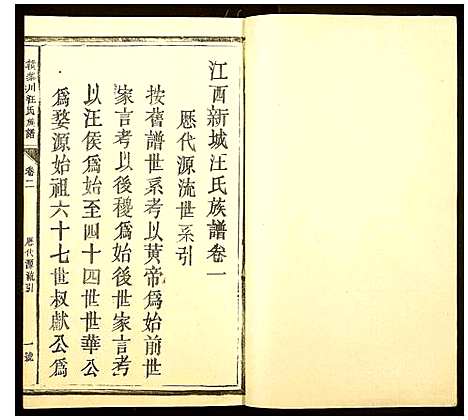 江西新城汪氏族譜卷一
歷代源流世系引
按舊譜世系考以黃帝爲始前世
家言考以後稷爲始後世家言考
以汪侯爲始至四十四世世華公
爲婺源始祖六十七世叔獻公爲
川汪氏族譜
卷二
歷代源流引
一號